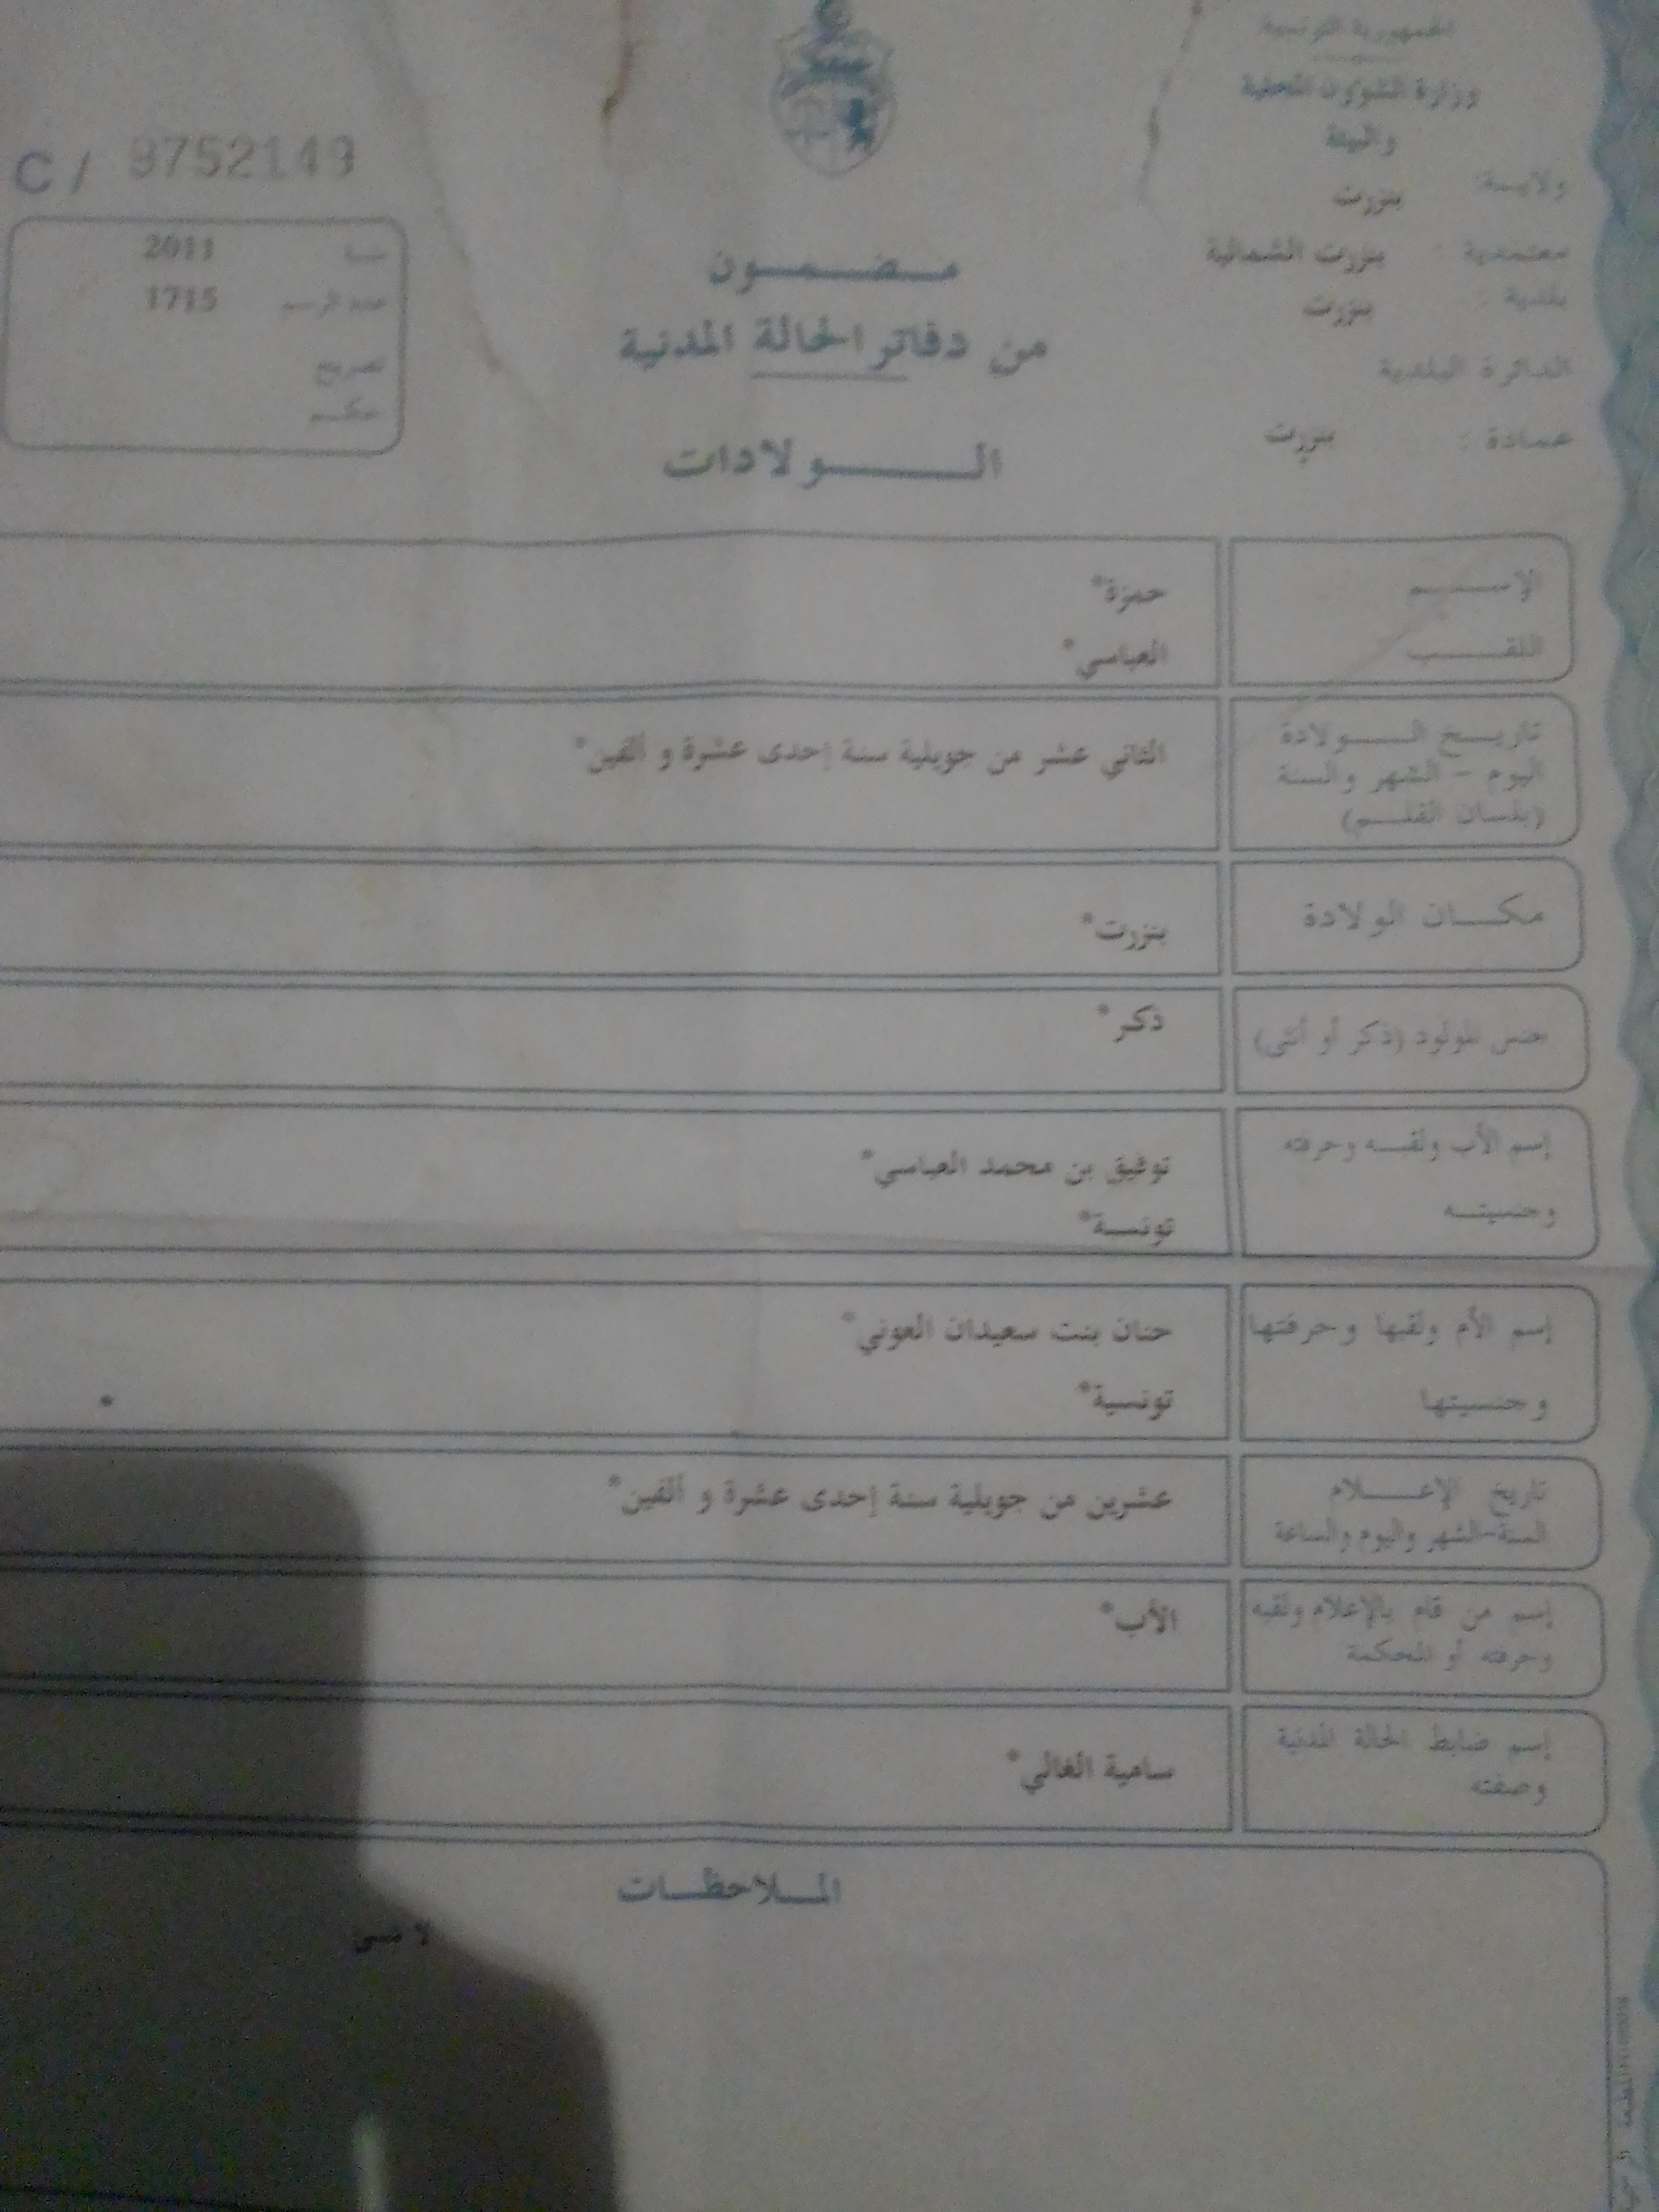 الجمهورية التونسية
وزارة الشؤون المحلية
والبيئة
ولايـــة: بنزرت
معتمدية : بنزرت الشمالية
بلدية : بنزرت
الدائرة البلدية
عمادة : بنزرت
C / 9752149
سنة 2011
عدد الرسم 1715
تصريح
حكم
مـضـمـون
من دفاتر الحالة المدنية
الـولادات
الإسـم حمزة*
اللقـب العباسي*
تاريـخ الـولادة
اليوم - الشهر والسنة
(بلسان القلـم)
الثاني عشر من جويلية سنة إحدى عشرة و ألفين*
مكـان الولادة بنزرت*
جنس المولود (ذكر أو أنثى) ذكر*
إسم الأب ولقبـه وحرفته توفيق بن محمد العباسي*
وجنسيتـه تونسـة*
إسم الأم ولقبها وحرفتها حنان بنت سعيدان العوني*
وجنسيتها تونسية*
*
تاريخ الإعـلام
السنة-الشهر واليوم والساعة
عشرين من جويلية سنة إحدى عشرة و ألفين*
إسم من قام بالإعلام ولقبه
وحرفته أو المحكمة
الأب*
إسم ضابط الحالة المدنية
وصفته
سامية الغالي*
المـلاحظـات